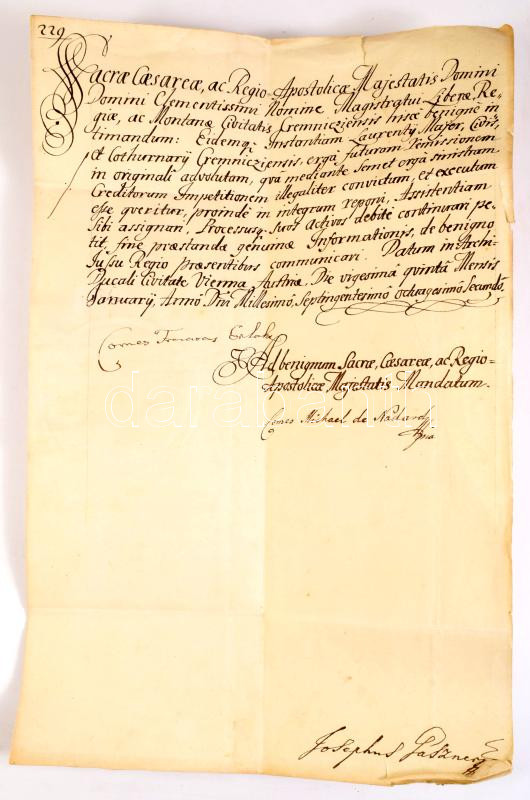 229
Sacræ Cæsareæ, ac Regio-Apostolicæ Majestatis Domini
Domini Clementissimi Nomine Magistratui Liberæ, Re-
giæ, ac Montanæ Civitatis Cremnicziensis hisce benigne in-
timandum: Eidemq Instantiam Laurentÿ Major, Civis,
et Cothurnarÿ Cremnicziensis erga futuram remissionem
in originali advolutam, qvâ mediante Semet orga sinistram
Creditorum Impetitionem illegaliter convictum, et executum
esse queritur, proinde in integrum reponi, Assistentiam
Sibi assignari, Processusq Suos Activos debite continuari pe-
tit, fine præstandæ genuinæ Informationis, de benigno
Jussu Regio præsentibus communicari. Datum in Archi-
Ducali Civitate Vienna Austriæ, Die vigesimâ quintâ Mensis
Januarÿ, Anno Dni Millesimo, Septingentesimo octuagesimo Secundo.
Comes Franciscus
Ad benignum Sacræ, Cæsareæ, ac Regio-
Apostolicæ Majestatis Mandatum.
Comes Michael de Nadasd
mpria
darabanth
Josephus Paszner